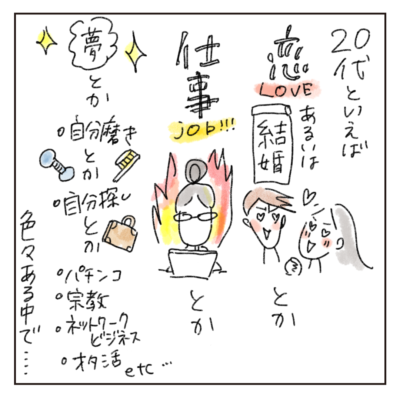 20代といえば
恋
LOVE
あるいは
結婚
とか
仕事
JOB!!!
とか
夢
とか
○自分磨き
とか
○自分探し
とか
○パチンコ
○宗教
○ネットワーク
ビジネス
○オタ活
etc…
色々ある中で……